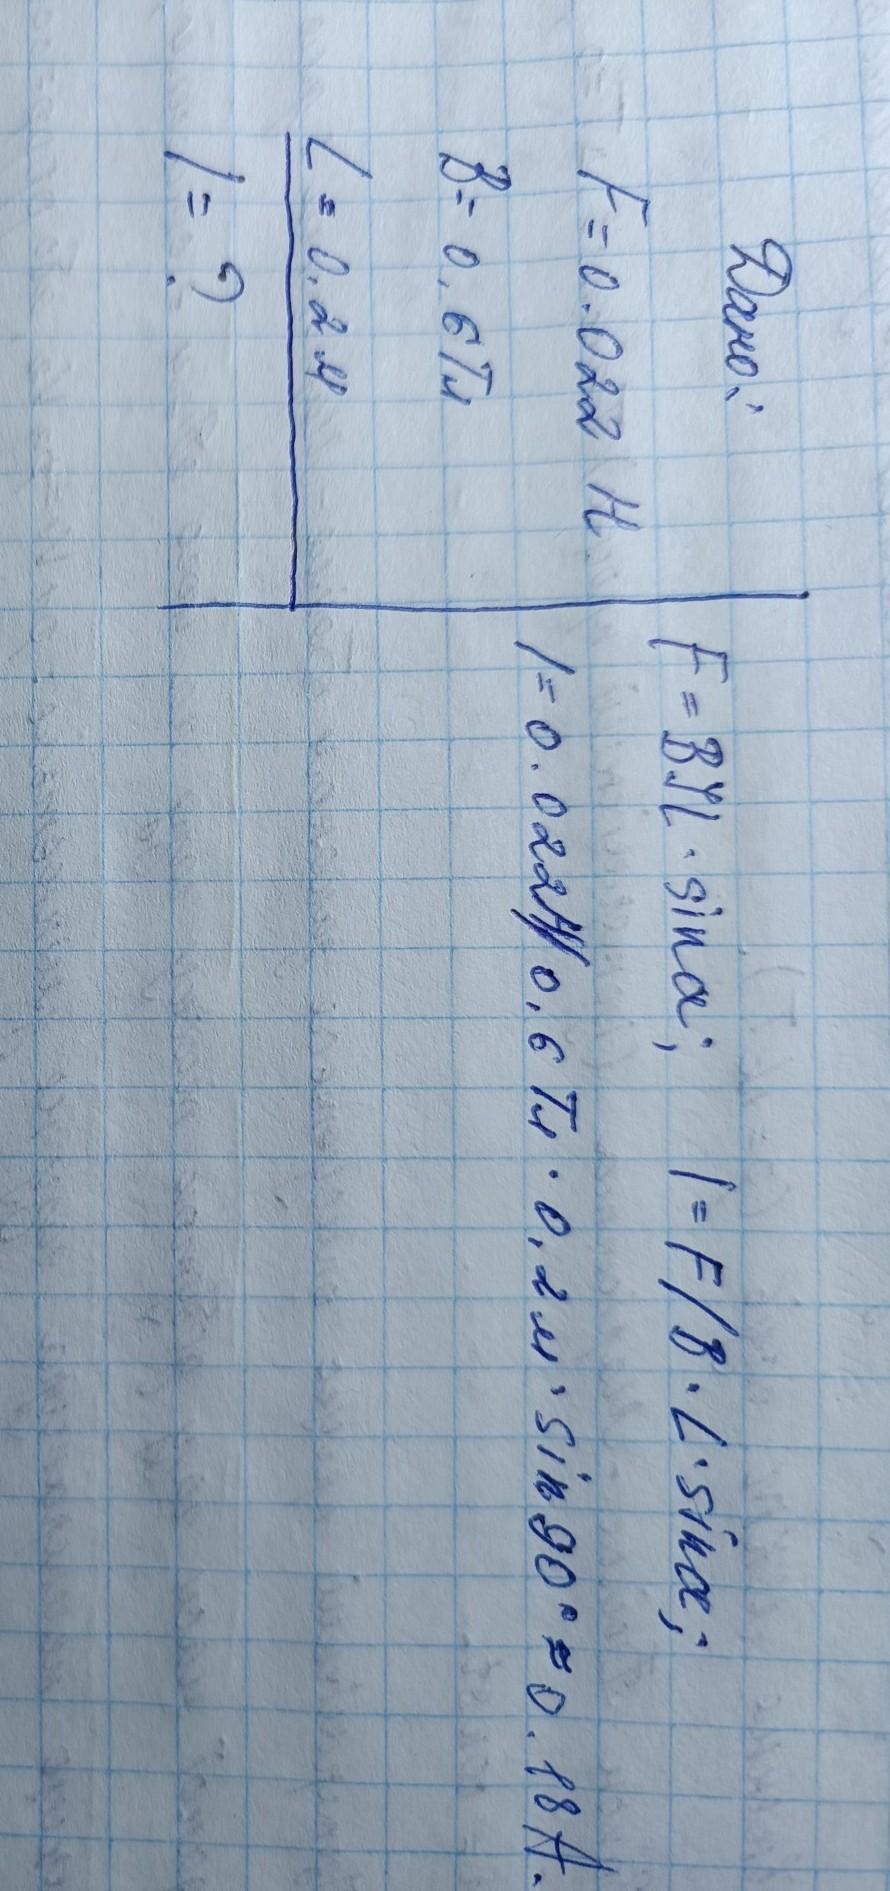 Дано:
F = 0.022 Н
B = 0,6 Тл
L = 0,2 м
I = ?
F = BIL · sinα; I = F/B · L · sinα;
I = 0.022Н/0,6 Тл · 0,2 м · sin 90° ≈ 0.18 А.